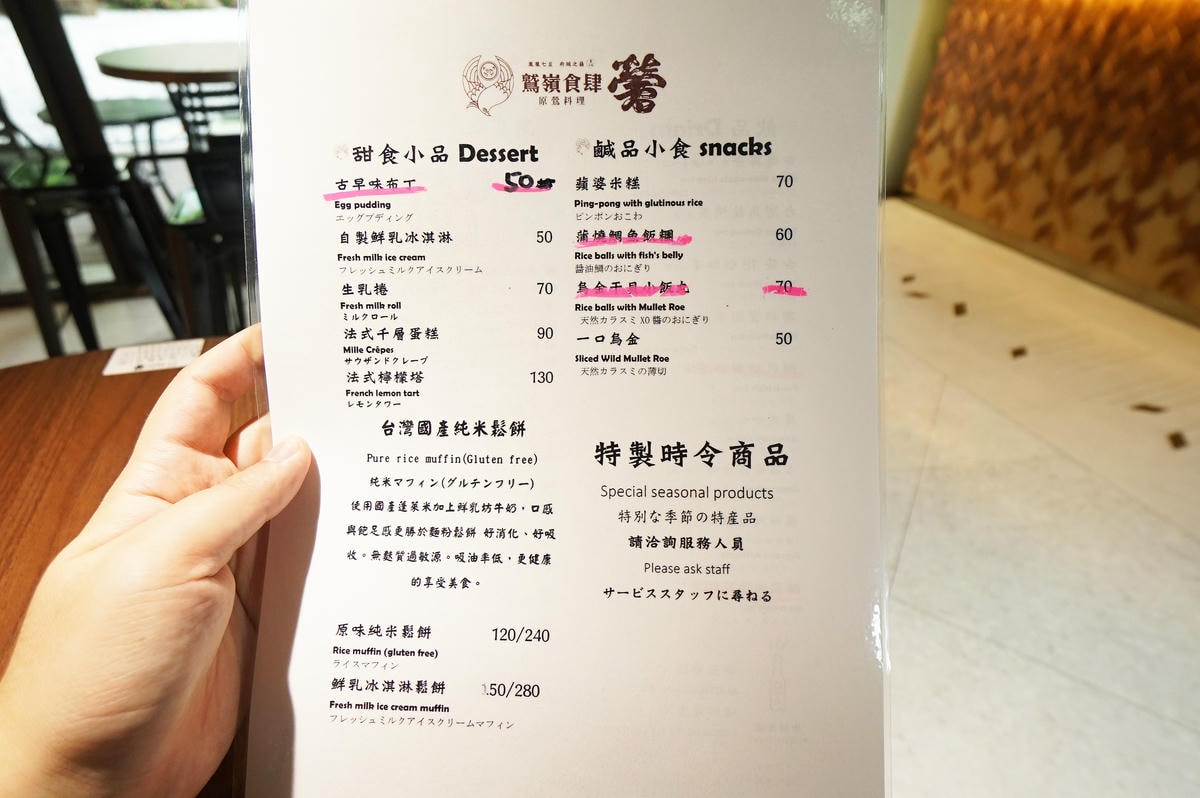 鷲嶺食肆
原鶯料理
甜食小品 Dessert
古早味布丁 50
Egg pudding
エッグプディング
自製鮮乳冰淇淋 50
Fresh milk ice cream
フレッシュミルクアイスクリーム
生乳捲 70
Fresh milk roll
ミルクロール
法式千層蛋糕 90
Mille Crêpes
サウザンドクレープ
法式檸檬塔 130
French lemon tart
レモンタワー
台灣國產純米鬆餅
Pure rice muffin(Gluten free)
純米マフィン(グルテンフリー)
使用國產蓬萊米加上鮮乳坊牛奶，口感
與飽足感更勝於麵粉鬆餅 好消化、好吸
收。無麩質過敏源。吸油率低，更健康
的享受美食。
原味純米鬆餅 120/240
Rice muffin (gluten free)
ライスマフィン
鮮乳冰淇淋鬆餅 150/280
Fresh milk ice cream muffin
フレッシュミルクアイスクリームマフィン
鹹品小食 snacks
蘋婆米糕 70
Ping-pong with glutinous rice
ピンポンおこわ
蒲燒鯛魚飯糰 60
Rice balls with fish's belly
醬油鯛のおにぎり
烏金干貝小飯丸 70
Rice balls with Mullet Roe
天然カラスミXO醬のおにぎり
一口烏金 50
Sliced Wild Mullet Roe
天然カラスミの薄切
特製時令商品
Special seasonal products
特別な季節の特産品
請洽詢服務人員
Please ask staff
サービススタッフに尋ねる